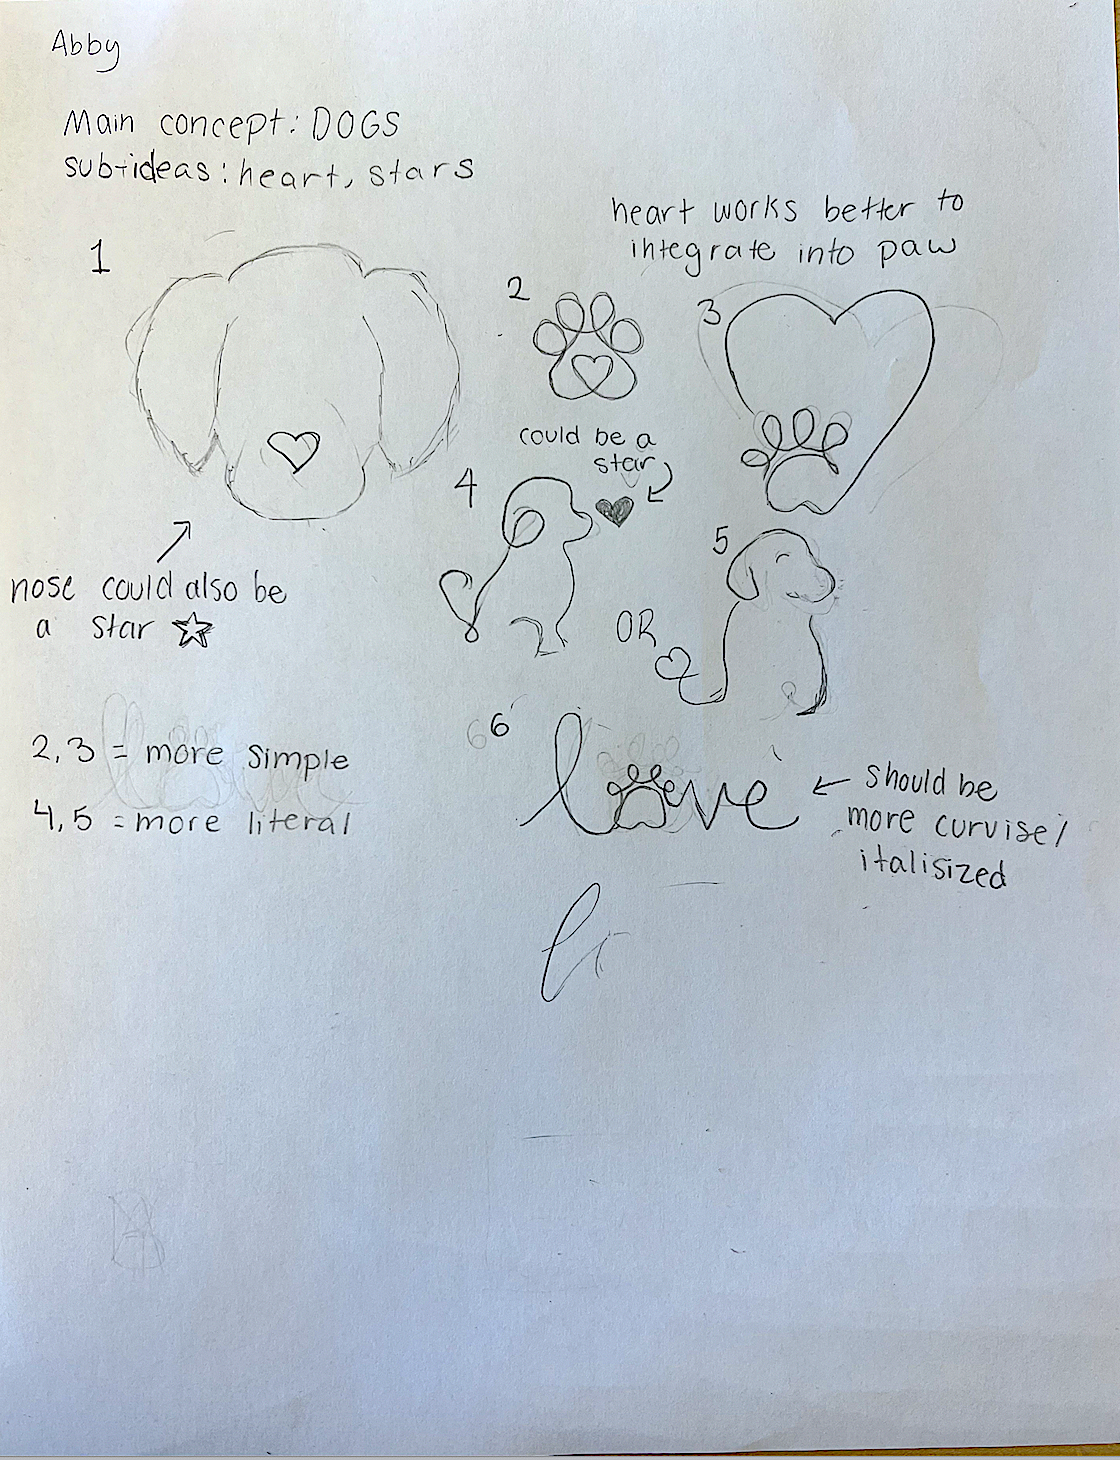 Abby
Main concept: DOGS
sub-ideas: heart, stars
heart works better to
integrate into paw
1
2
3
could be a
star
4
5
nose could also be
a star
OR
2,3 = more simple
4,5 = more literal
6
love
should be
more curvise/
italisized